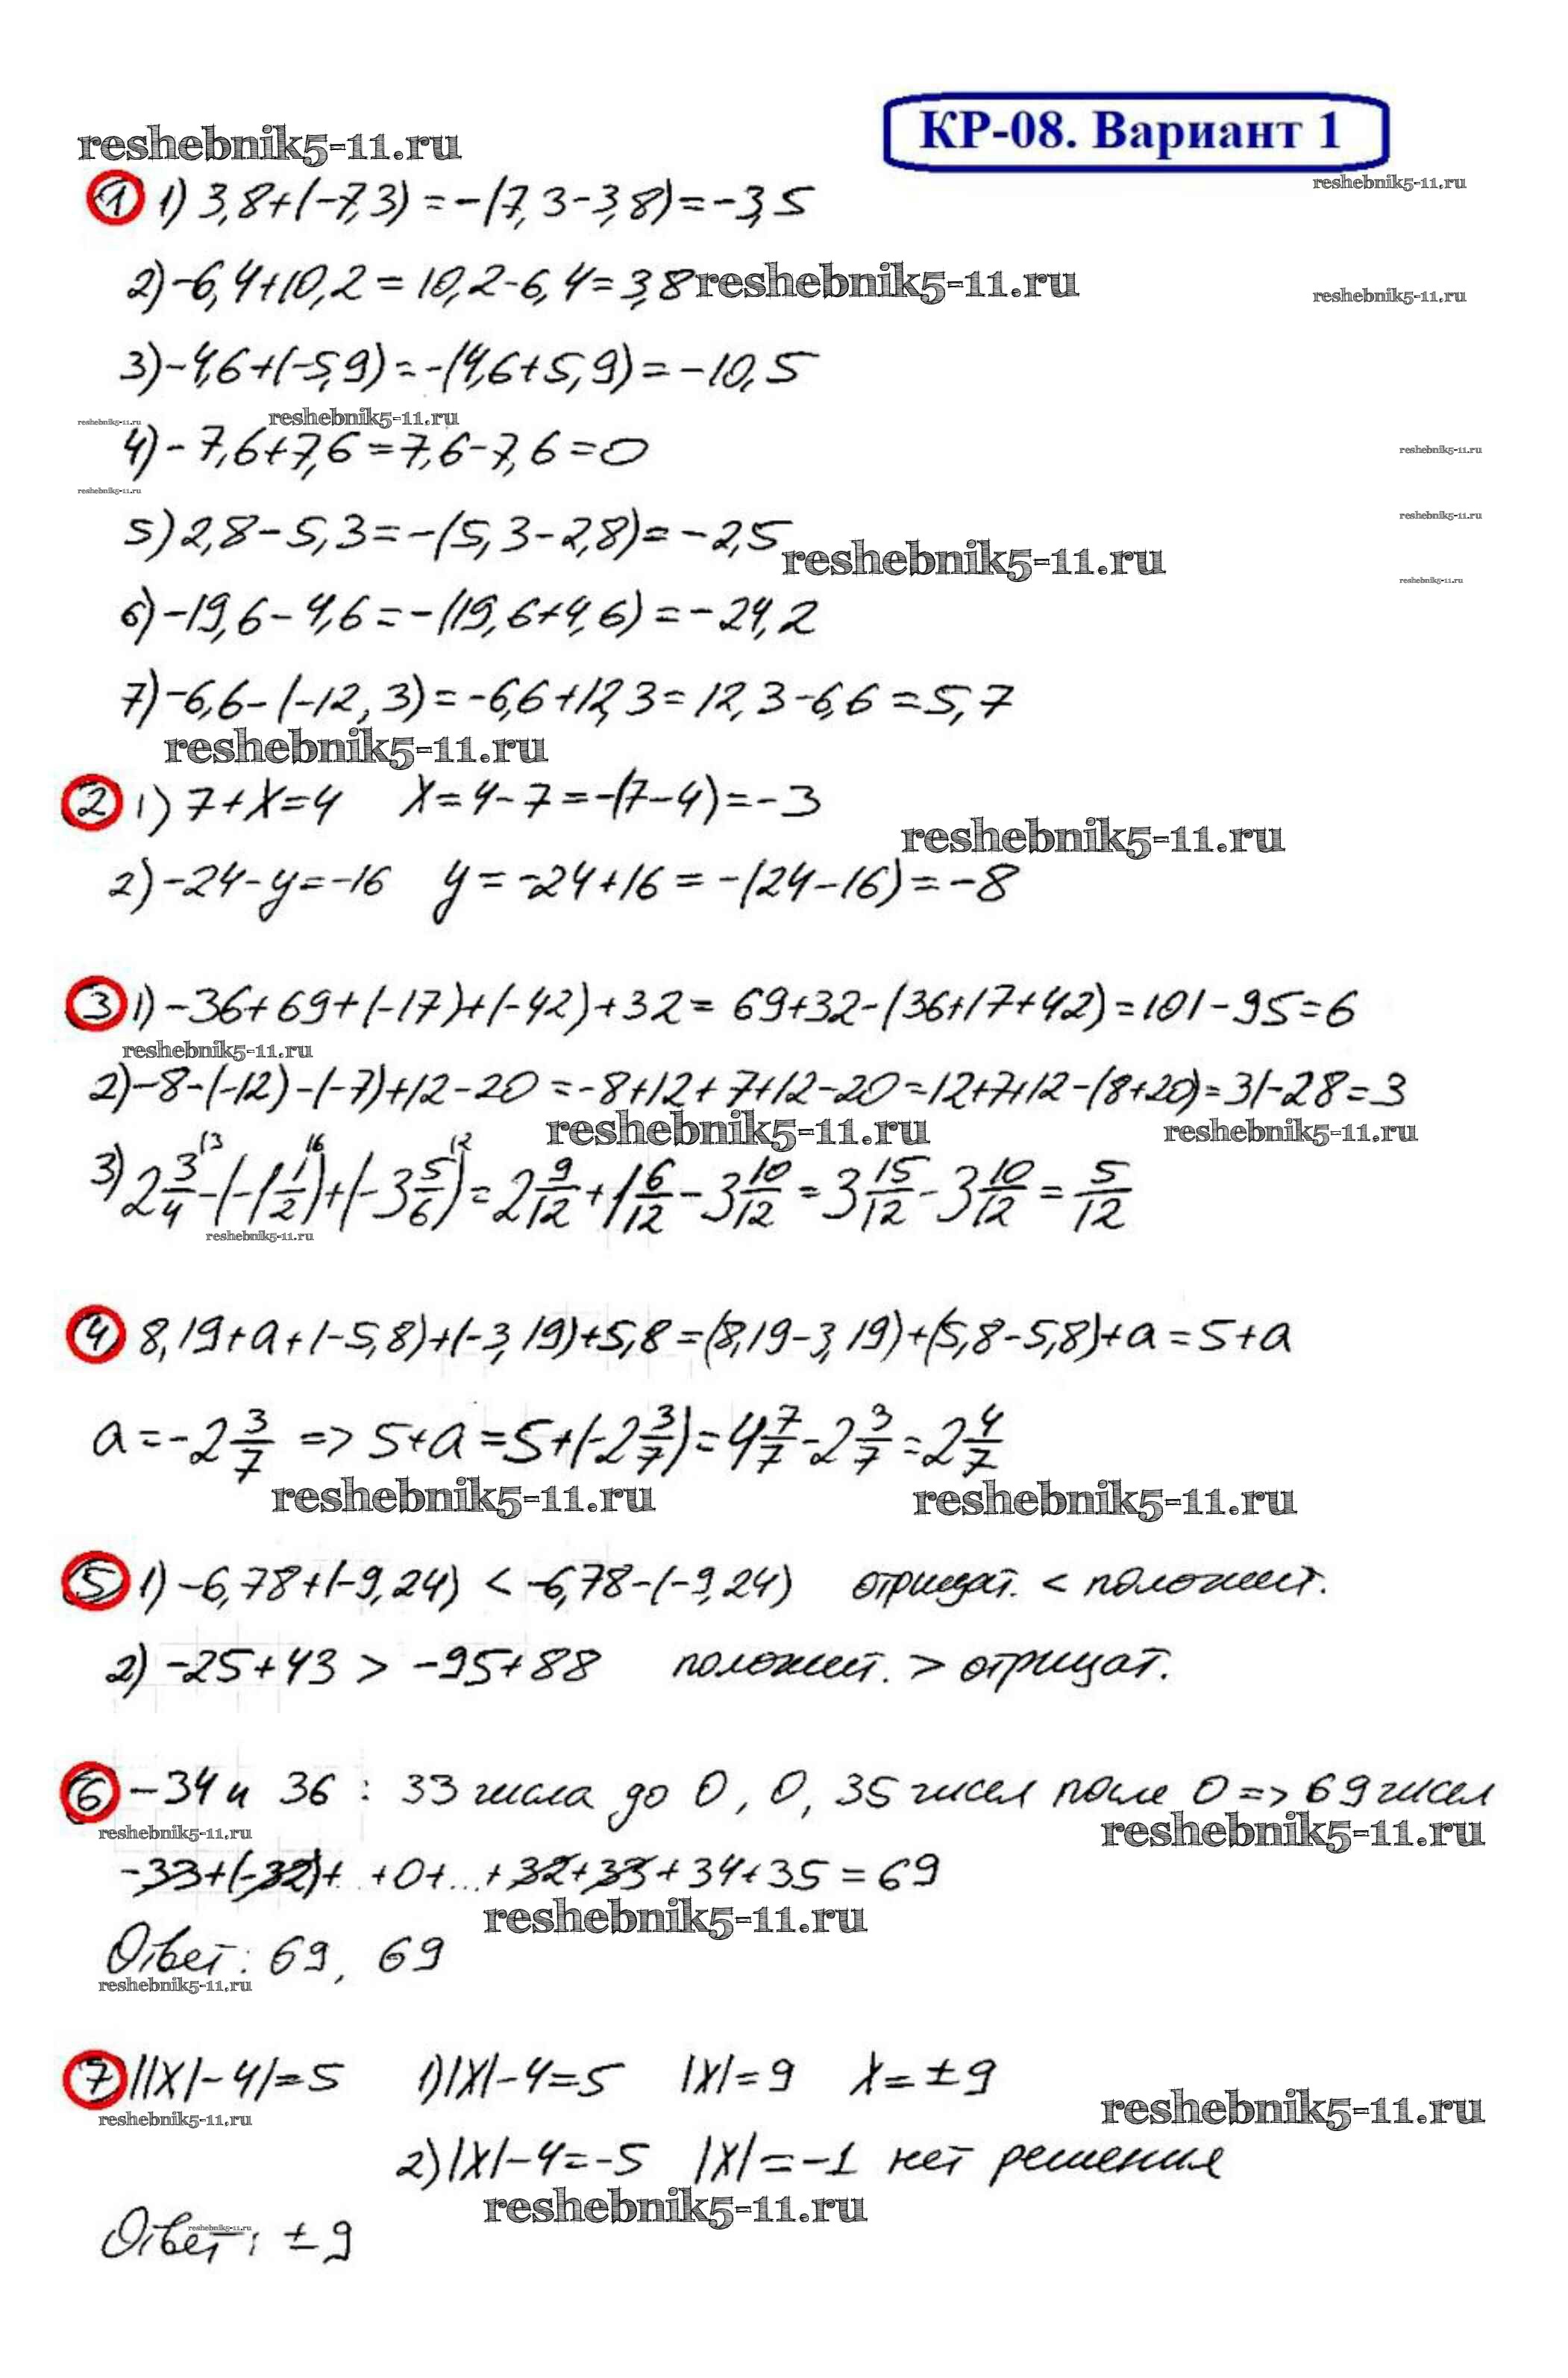 КР-08. Вариант 1
reshebnik5-11.ru
reshebnik5-11.ru
1 1) 3,8+(-7,3)=-(7,3-3,8)=-3,5
2) -6,4+10,2=10,2-6,4=3,8 reshebnik5-11.ru
reshebnik5-11.ru
3) -4,6+(-5,9)=-(4,6+5,9)=-10,5
reshebnik5-11.ru
reshebnik5-11.ru
4) -7,6+7,6=7,6-7,6=0
reshebnik5-11.ru
reshebnik5-11.ru
reshebnik5-11.ru
5) 2,8-5,3=-(5,3-2,8)=-2,5
reshebnik5-11.ru
reshebnik5-11.ru
6) -19,6-4,6=-(19,6+4,6)=-24,2
7) -6,6-(-12,3)=-6,6+12,3=12,3-6,6=5,7
reshebnik5-11.ru
2 1) 7+x=4 x=4-7=-(7-4)=-3
reshebnik5-11.ru
2) -24-y=-16 y=-24+16=-(24-16)=-8
3 1) -36+69+(-17)+(-42)+32=69+32-(36+17+42)=101-95=6
reshebnik5-11.ru
2) -8-(-12)-(-7)+12-20=-8+12+7+12-20=12+7+12-(8+20)=31-28=3
reshebnik5-11.ru reshebnik5-11.ru
3) 2 3/4 (3 - (-1 1/2 (6) + (-3 5/6 (2) = 2 9/12 + 1 6/12 - 3 10/12 = 3 15/12 - 3 10/12 = 5/12
reshebnik5-11.ru
4 8,19+a+(-5,8)+(-3,19)+5,8=(8,19-3,19)+(5,8-5,8)+a=5+a
a=-2 3/7 => 5+a=5+(-2 3/7)=4 7/7-2 3/7=2 4/7
reshebnik5-11.ru reshebnik5-11.ru
5 1) -6,78+(-9,24) < -6,78-(-9,24) отрицат. < положит.
2) -25+43 > -95+88 положит. > отрицат.
6 -34 и 36 : 33 числа до 0, 0, 35 чисел после 0 => 69 чисел
reshebnik5-11.ru reshebnik5-11.ru
-33+(-32)+..+0+...+32+33+34+35=69
reshebnik5-11.ru
Ответ: 69, 69
reshebnik5-11.ru
7 ||x|-4|=5 1) |x|-4=5 |x|=9 x=±9
reshebnik5-11.ru reshebnik5-11.ru
2) |x|-4=-5 |x|=-1 нет решения
reshebnik5-11.ru
reshebnik5-11.ru
Ответ: ±9